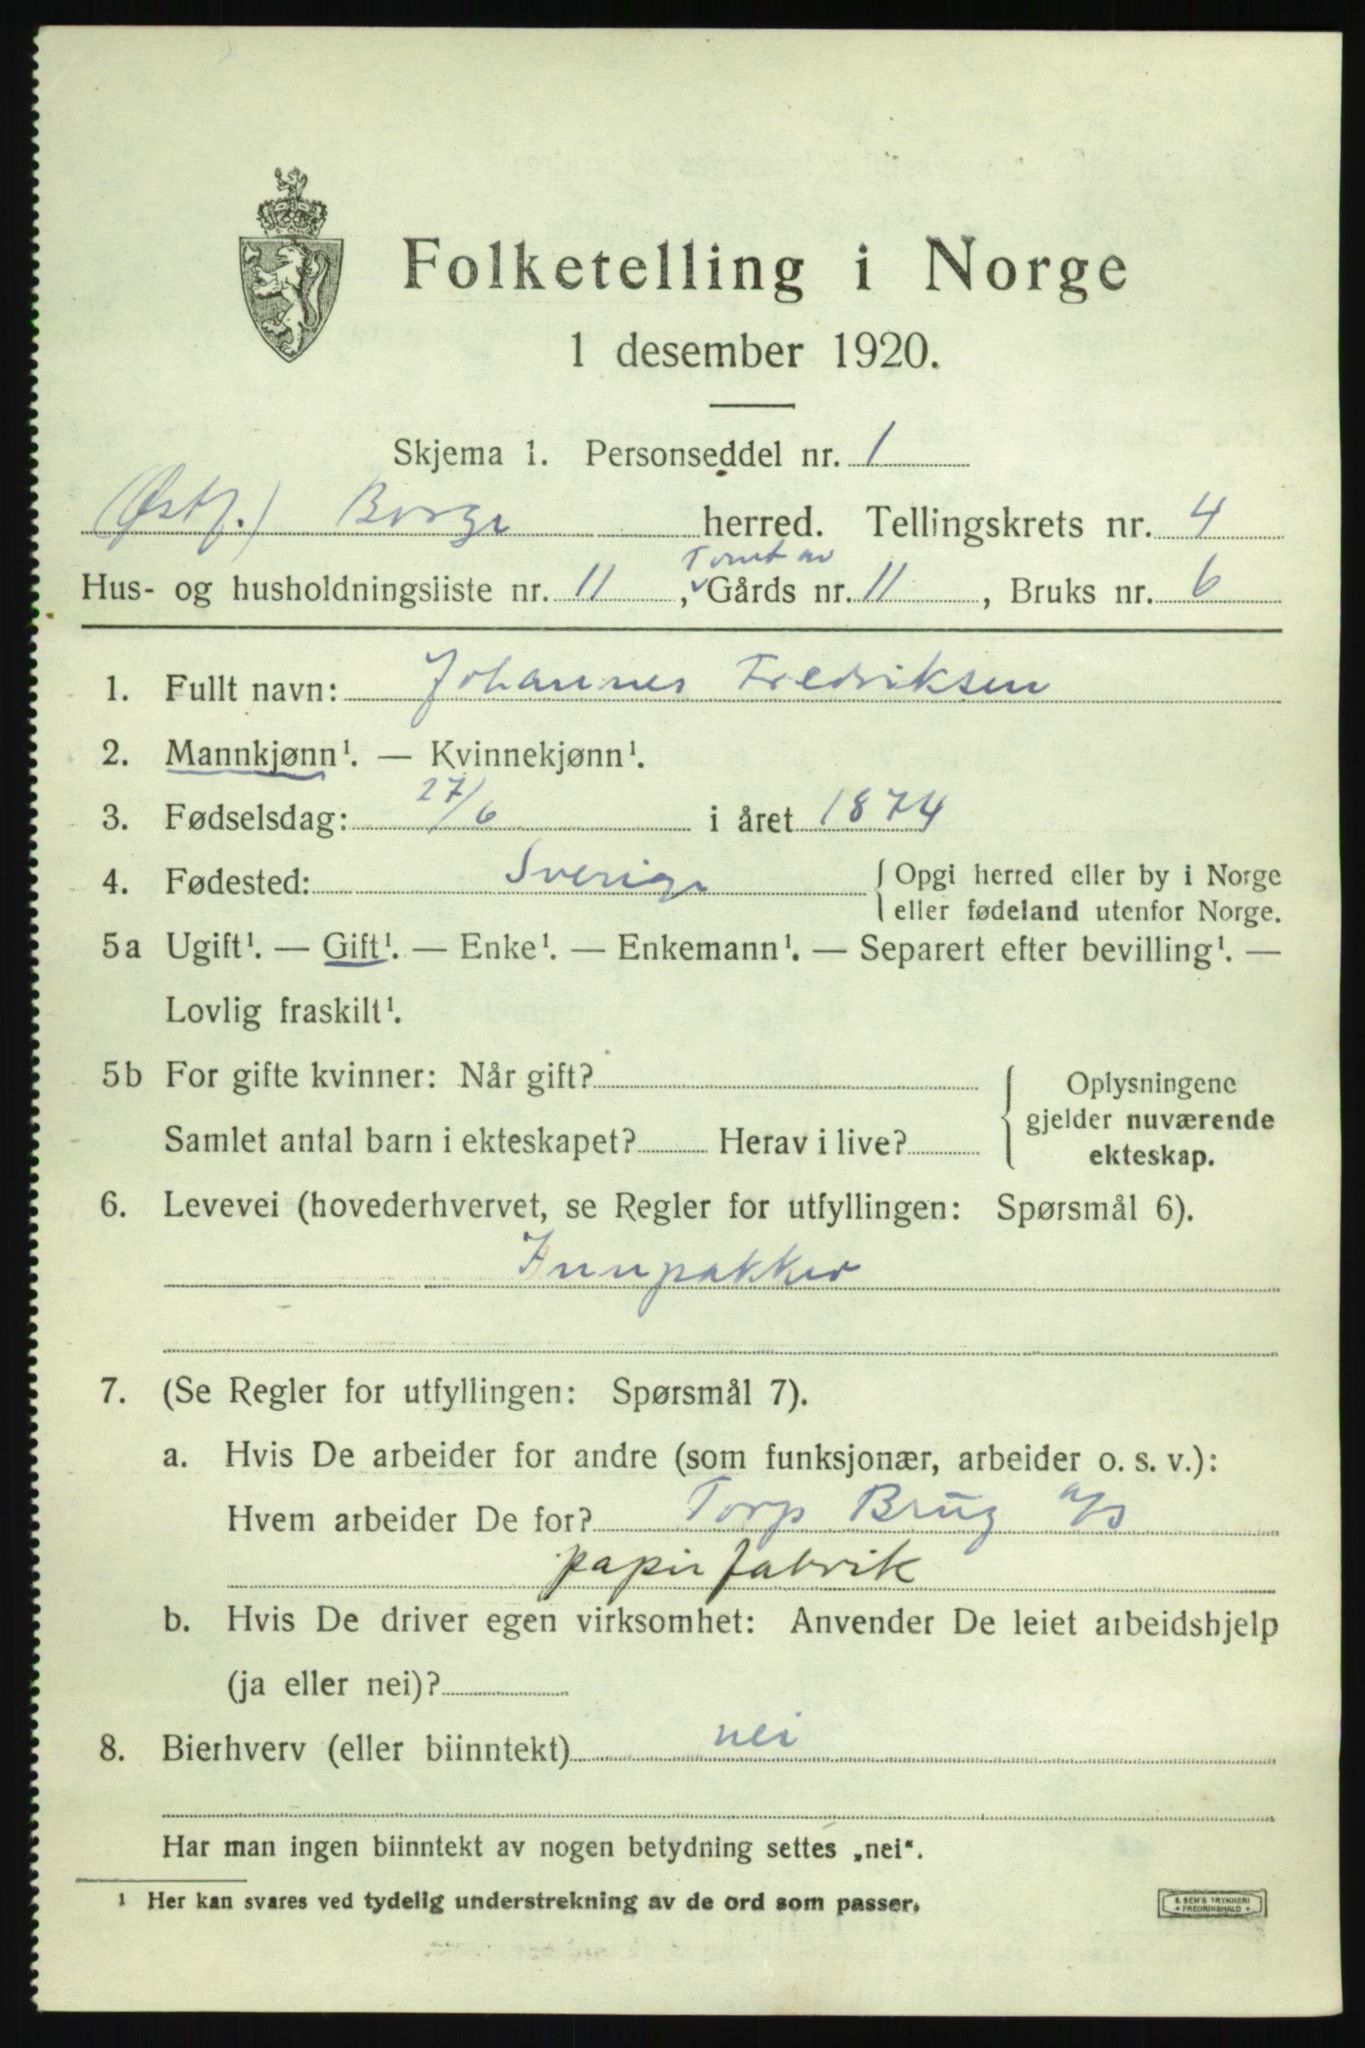 Folketelling i Norge
1 desember 1920.
Skjema 1. Personseddel nr. 1
(Østf.) Borge herred. Tellingskrets nr. 4
Tomt av
Hus- og husholdningsliste nr. 11, Gårds nr. 11, Bruks nr. 6
1. Fullt navn: Johannes Fredriksen
2. Mannkjønn¹. — Kvinnekjønn¹.
3. Fødselsdag: 27/6 i året 1874
4. Fødested: Sverige { Opgi herred eller by i Norge
eller fødeland utenfor Norge.
5a Ugift¹. — Gift¹. — Enke¹. — Enkemann¹. — Separert efter bevilling¹. —
Lovlig fraskilt¹.
5b For gifte kvinner: Når gift? { Oplysningene
gjelder nuværende
Samlet antal barn i ekteskapet? Herav i live?
ekteskap.
6. Levevei (hovederhvervet, se Regler for utfyllingen: Spørsmål 6).
Innpakker
7. (Se Regler for utfyllingen: Spørsmål 7).
a. Hvis De arbeider for andre (som funksjonær, arbeider o. s. v.):
Hvem arbeider De for? Torp Brug a/s
papirfabrik
b. Hvis De driver egen virksomhet: Anvender De leiet arbeidshjelp
(ja eller nei)?
8. Bierhverv (eller biinntekt) nei
Har man ingen biinntekt av nogen betydning settes „nei“.
¹ Her kan svares ved tydelig understrekning av de ord som passer.
SEM'S TRYKKERI
FREDRIKSHALD